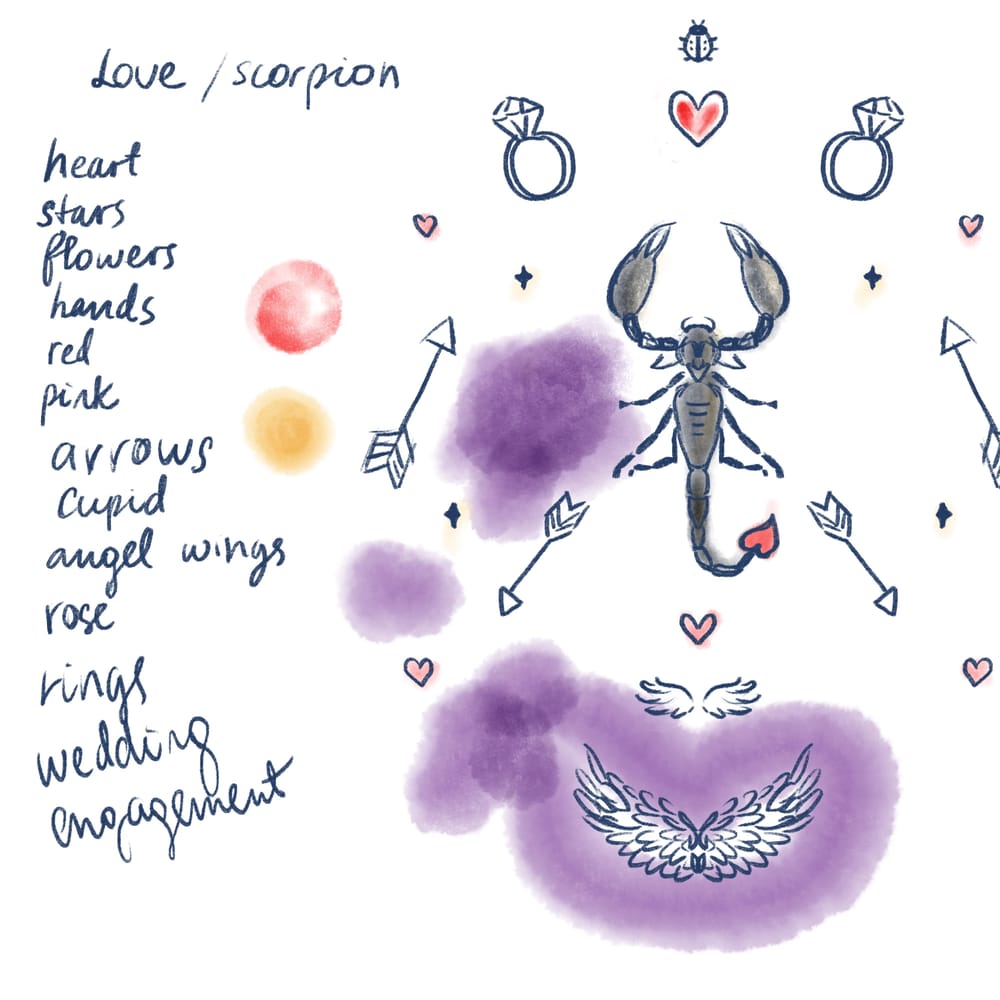 Love / scorpion
heart
stars
flowers
hands
red
pink
arrows
Cupid
angel wings
rose
rings
wedding
engagement